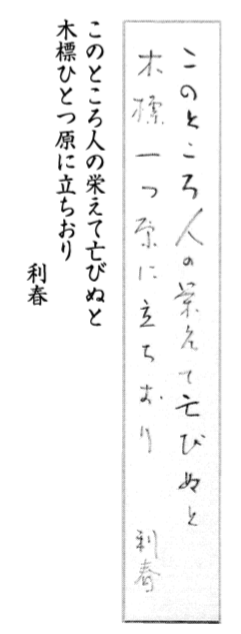 このところ人の栄えて亡びぬと
木標一つ原に立ちおり
利春
このところ人の栄えて亡びぬと
木標ひとつ原に立ちおり
利春